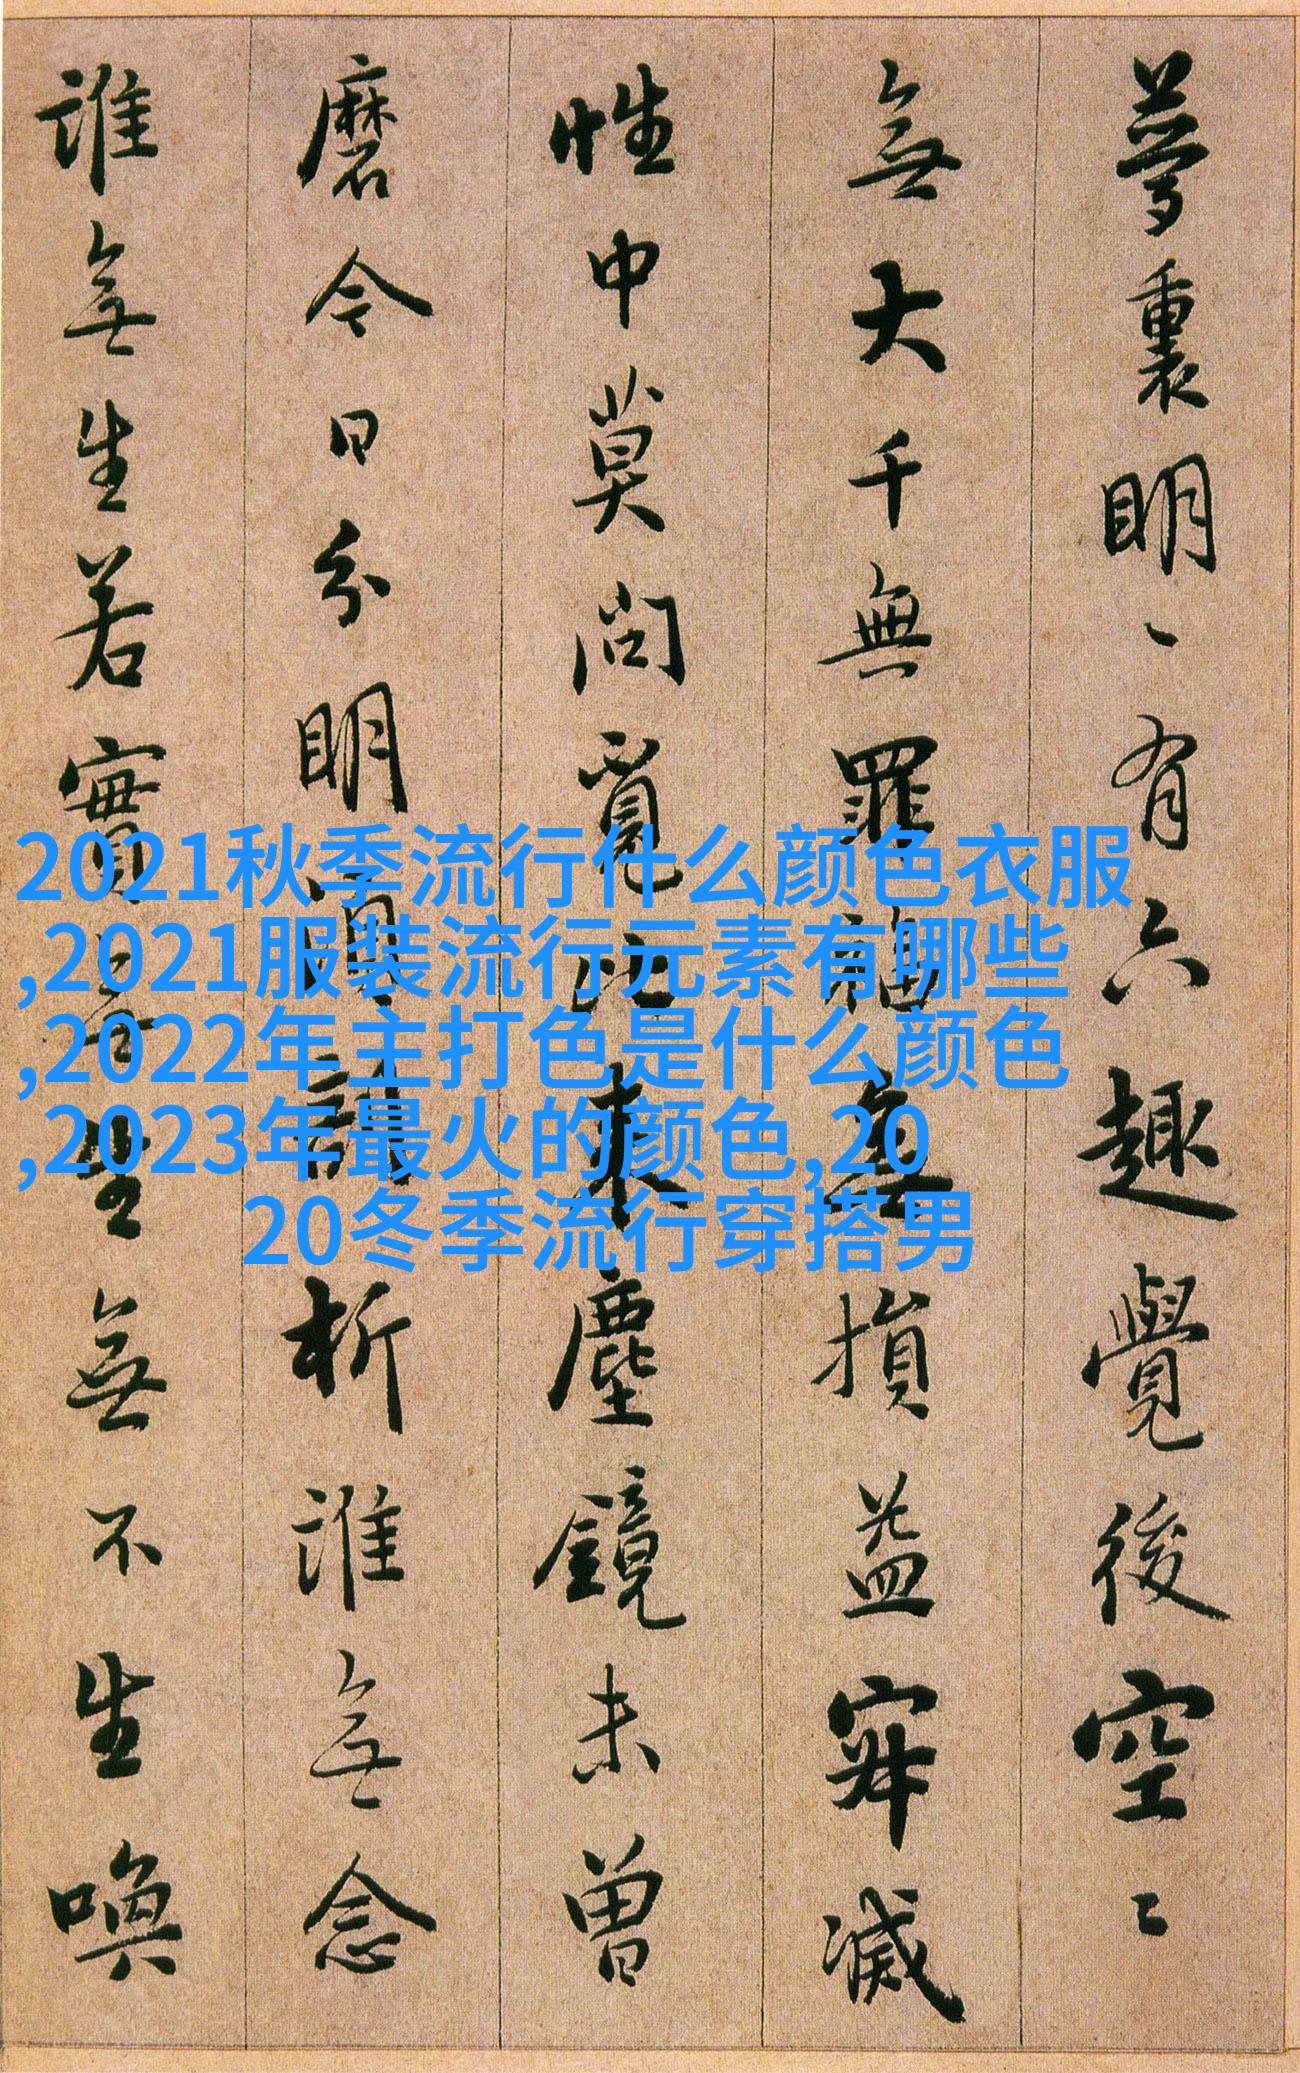 夢裏明〻有六趣覺後空〻
無大千無罪福無損益寂滅
性中莫問覓比來塵鏡未曾
磨今日分明析誰無念
誰無生若實無生無不生喚
2021秋季流行什么颜色衣服
,2021服装流行元素有哪些
,2022年主打色是什么颜色
,2023年最火的颜色,20
20冬季流行穿搭男